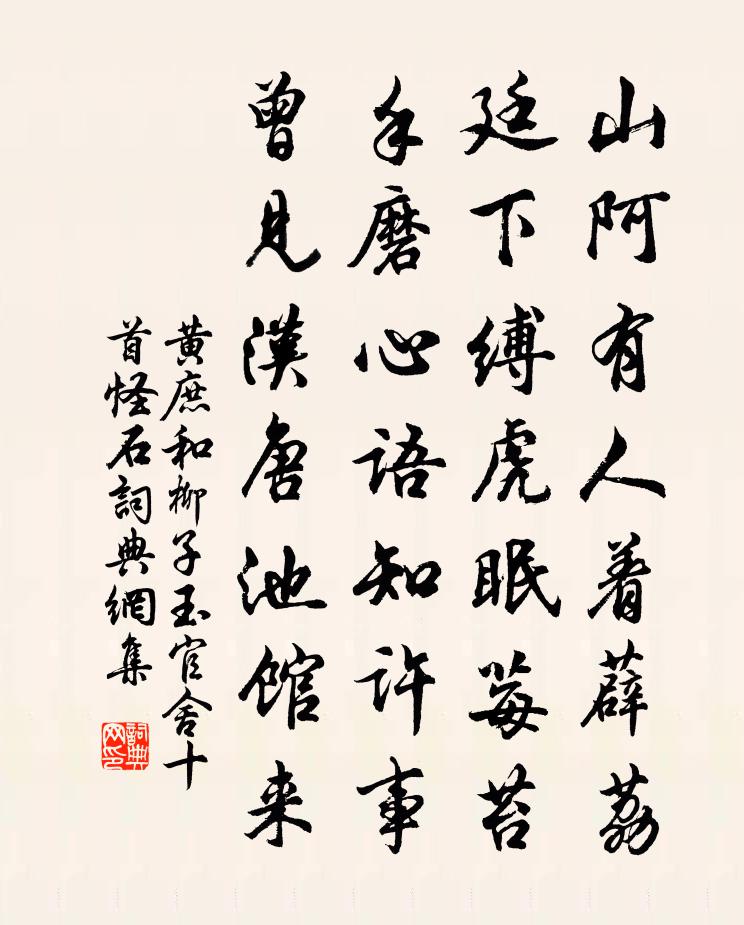 山阿有人着薜荔
廷下縛虎眠莓苔
手磨心語知許事
曾見漢唐池館来
黄庶和柳子玉官舍十
首怪石詞典網集
詞典网印